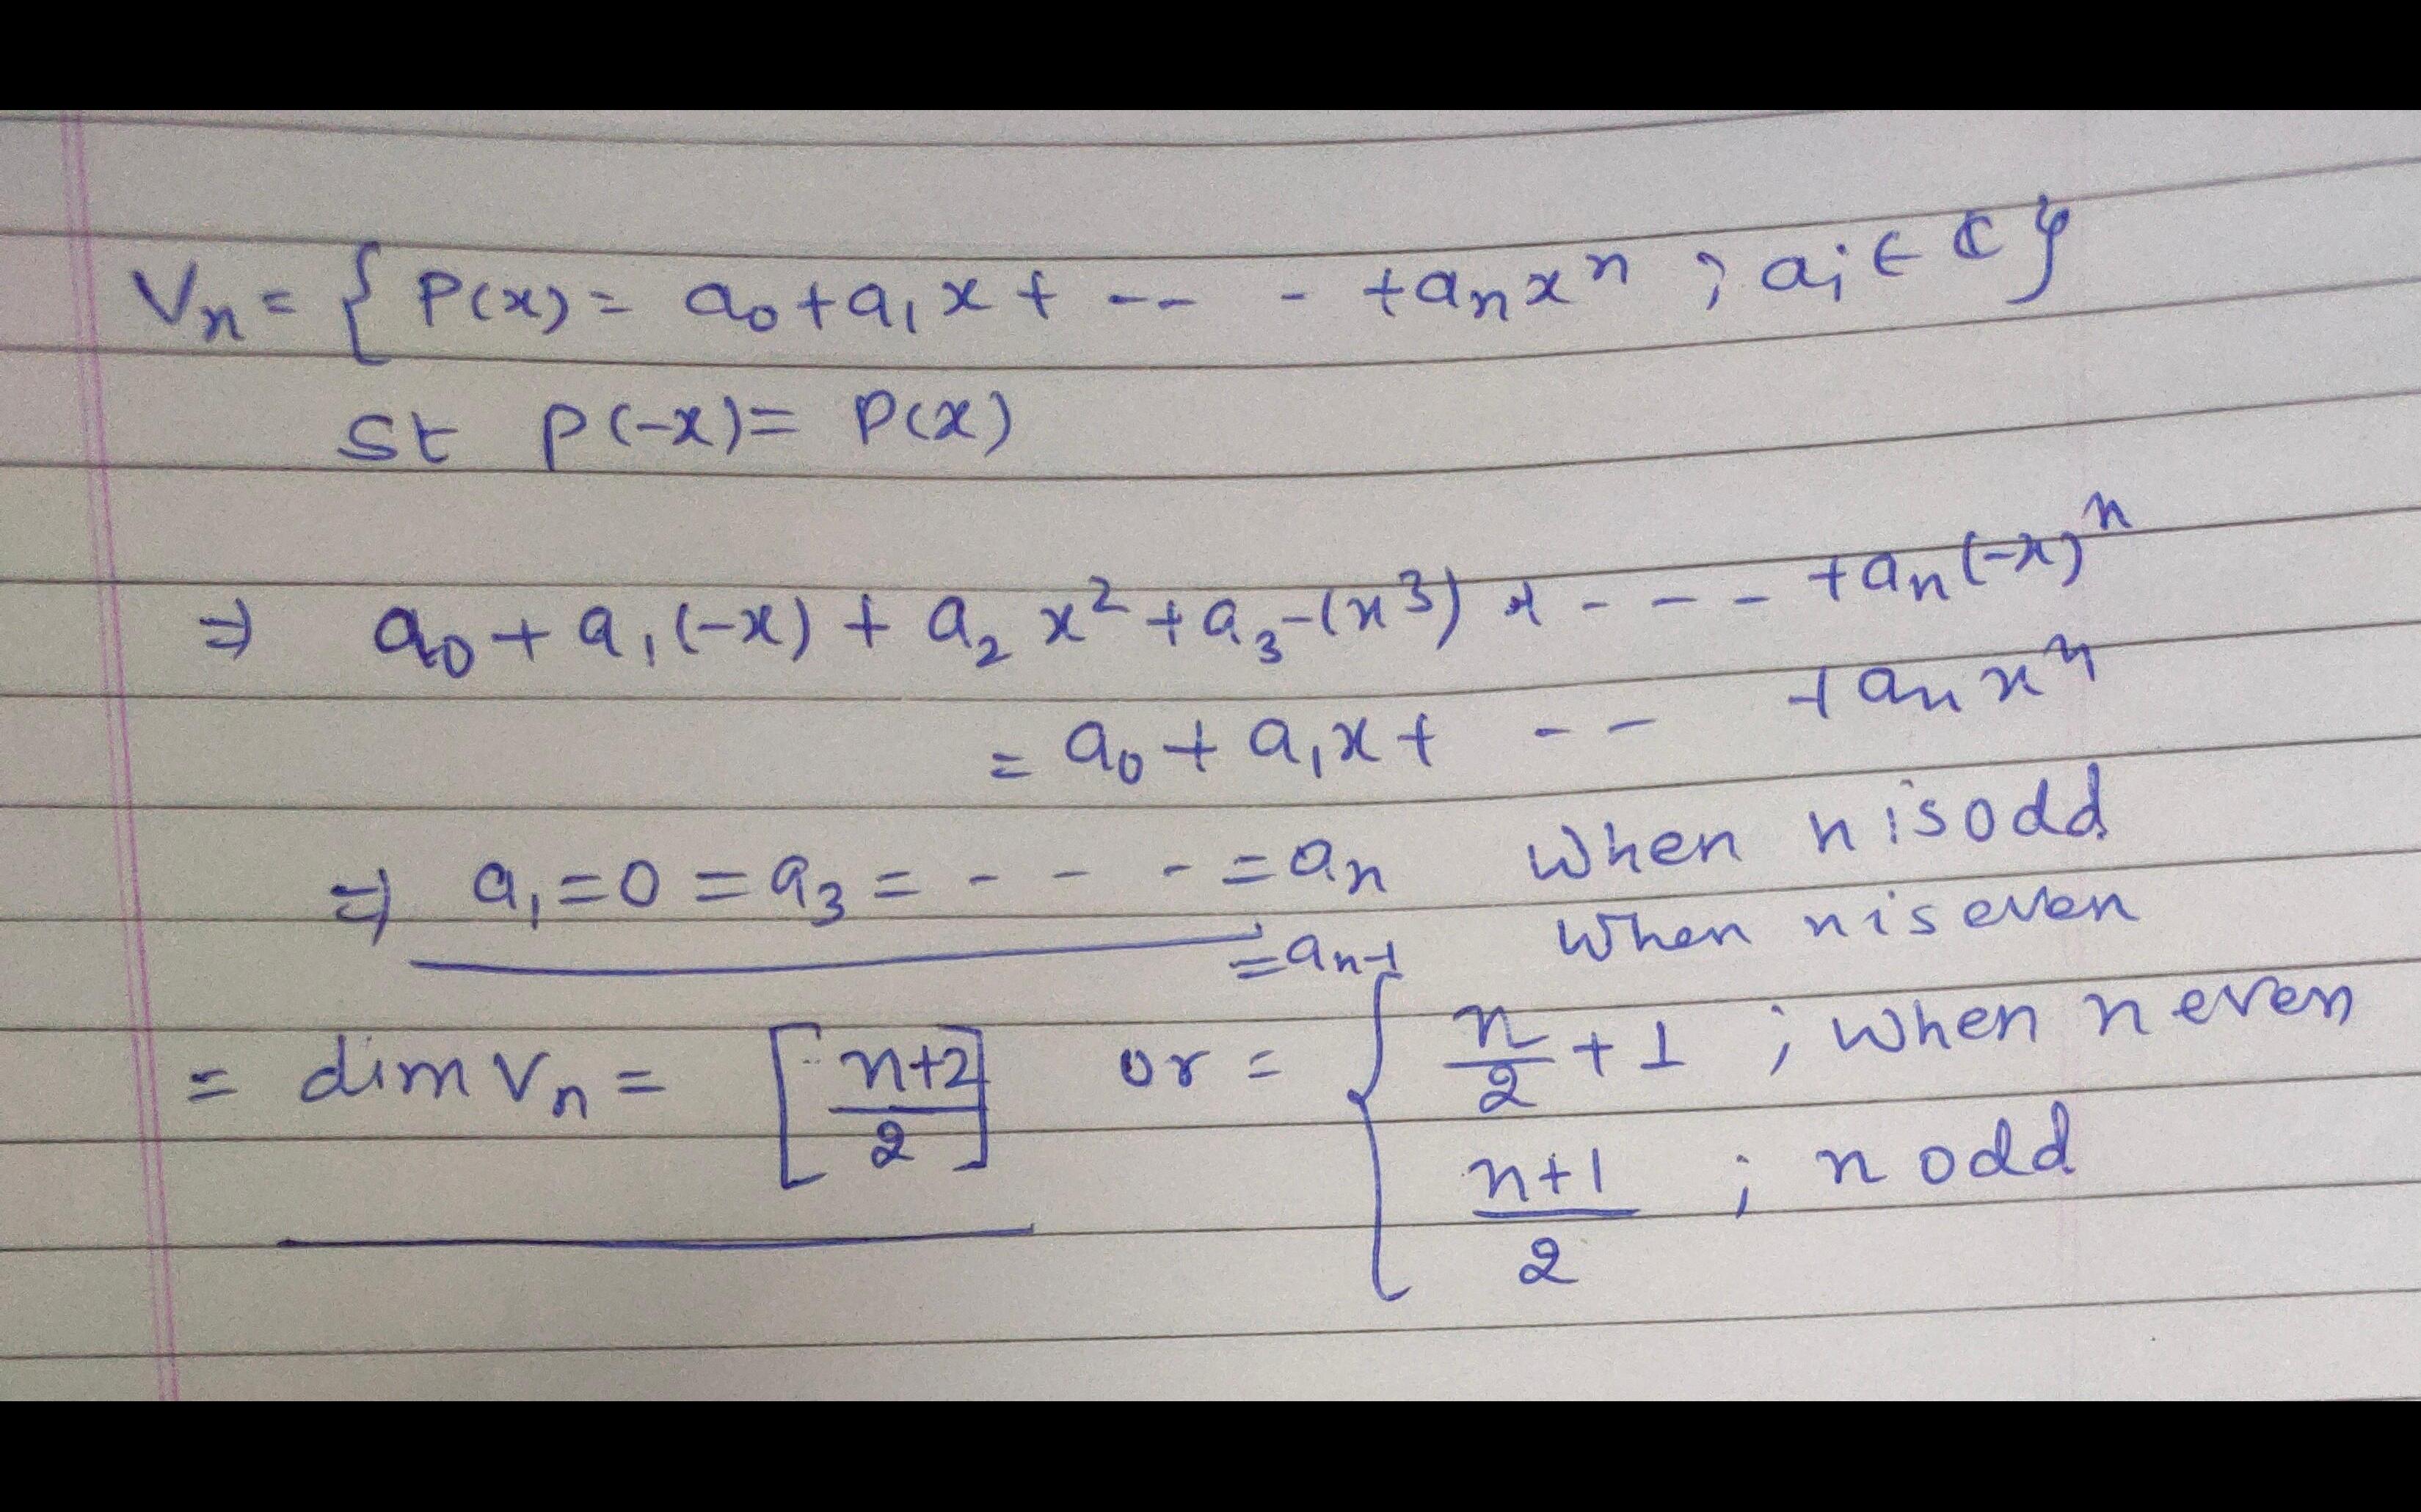 Vn = { P(x) = a₀ + a₁x + -- - + aₙxⁿ ; aᵢ ∈ ℂ }
st p(-x) = P(x)
⇒ a₀ + a₁(-x) + a₂ x² + a₃-(x³) + - - - + aₙ(-x)ⁿ
= a₀ + a₁x + -- + aₙxⁿ
⇒ a₁ = 0 = a₃ = - - - = aₙ when n is odd
= aₙ₋₁ when n is even
= dim Vn = [ (n+2)/2 ] or = { n/2 + 1 ; when n even
(n+1)/2 ; n odd